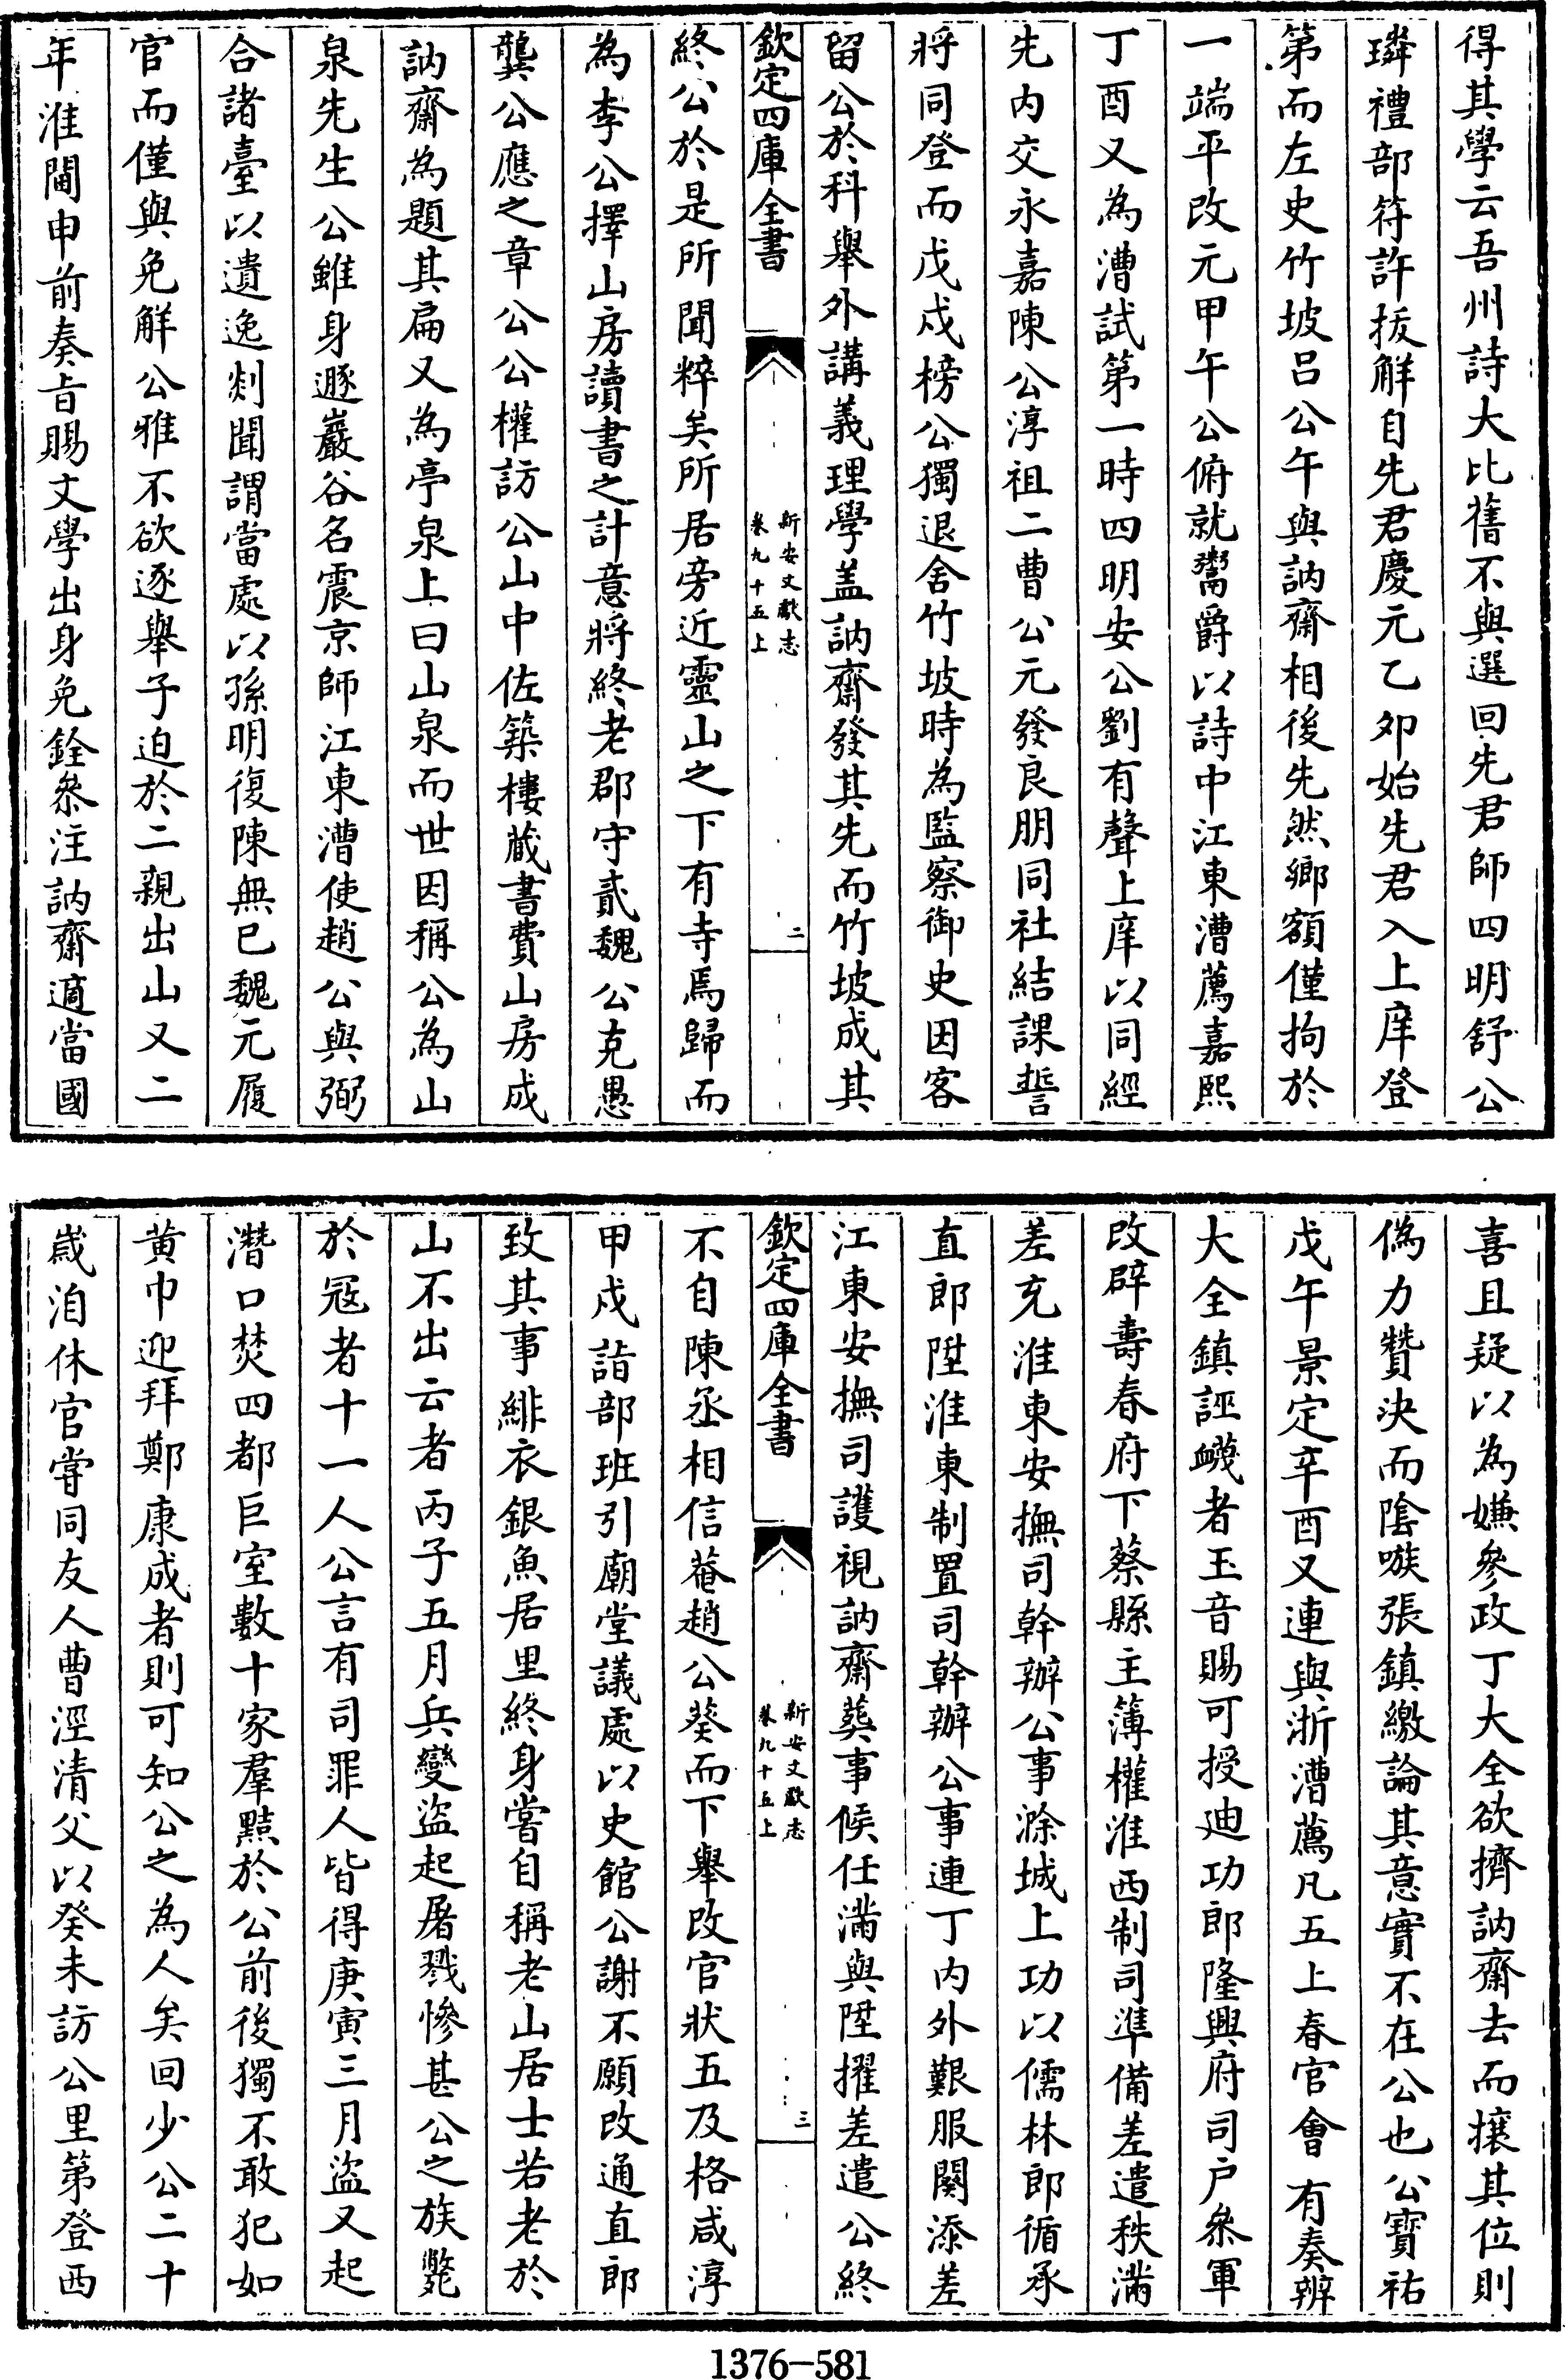 得其學云吾州詩大比舊不與選回先君師四明舒公
璘禮部符許拔解自先君慶元乙夘始先君入上庠登
第而左史竹坡呂公午與訥齋相後先然鄉額僅拘於
一端平改元甲午公俯就鬻爵以詩中江東漕薦嘉熙
丁酉又為漕試第一時四明安公劉有聲上庠以同經
先內交永嘉陳公淳祖二曹公元發良朋同社結課誓
將同登而戊戌榜公獨退舍竹坡時為監察御史因客
留公於科舉外講義理學盖訥齋發其先而竹坡成其
欽定四庫全書
新安文獻志
卷九十五上
二
終公於是所聞粹矣所居旁近靈山之下有寺焉歸而
為李公擇山房讀書之計意將終老郡守貳魏公克愚
龔公應之章公公權訪公山中佐築樓藏書費山房成
訥齋為題其扁又為亭泉上曰山泉而世因稱公為山
泉先生公雖身遯巖谷名震京師江東漕使趙公與弼
合諸臺以遺逸剡聞謂當處以孫明復陳無已魏元履
官而僅與免解公雅不欲逐舉子迫於二親出山又二
年淮閫申前奏㫖賜文學出身免銓叅注訥齋適當國
喜且疑以為嫌參政丁大全欲擠訥齋去而攘其位則
偽力贊決而陰嗾張鎮繳論其意實不在公也公寶祐
戊午景定辛酉又連與浙漕薦凡五上春官會有奏辨
大全鎮誣衊者玉音賜可授迪功郎隆興府司户叅軍
改辟壽春府下蔡縣主簿權淮西制司準備差遣秩滿
差充淮東安撫司幹辦公事滁城上功以儒林郎循承
直郎陞淮東制置司幹辦公事連丁內外艱服闋添差
江東安撫司護視訥齋葬事候任滿與陞擢差遣公終
欽定四庫全書
新安文獻志
卷九十五上
三
不自陳丞相信菴趙公葵而下舉改官狀五及格咸淳
甲戌詣部班引廟堂議處以史館公謝不願改通直郎
致其事緋衣銀魚居里終身嘗自稱老山居士若老於
山不出云者丙子五月兵變盜起屠戮慘甚公之族斃
於冦者十一人公言有司罪人皆得庚寅三月盜又起
潛口焚四都巨室數十家羣黠於公前後獨不敢犯如
黃巾迎拜鄭康成者則可知公之為人矣回少公二十
歲洎休官嘗同友人曹涇清父以癸未訪公里第登西
1376-581